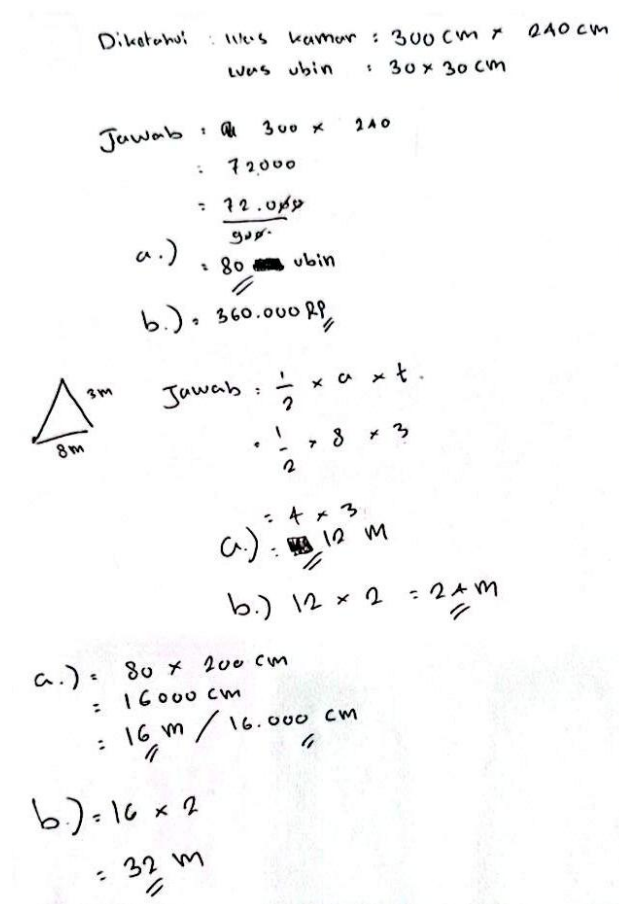 Diketahui : luas kamar : 300 cm x 240 cm
luas ubin : 30 x 30 cm
Jawab : 300 x 240
: 72000
= 72.000
900
a.) : 80 ubin
b.) = 360.000 RP
3m
8m
Jawab : 1/2 x a x t.
= 1/2 x 8 x 3
= 4 x 3
a.) = 12 m
b.) 12 x 2 = 24 m
a.) = 80 x 200 cm
= 16000 cm
= 16 m / 16.000 cm
b.) = 16 x 2
= 32 m